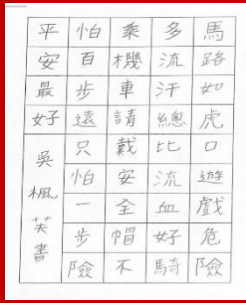 馬路如虎口遊戲危險
多流汗總比流血好騎
乘機車請戴安全帽不
怕百步遠只怕一步險
平安最好
吳楓芙書